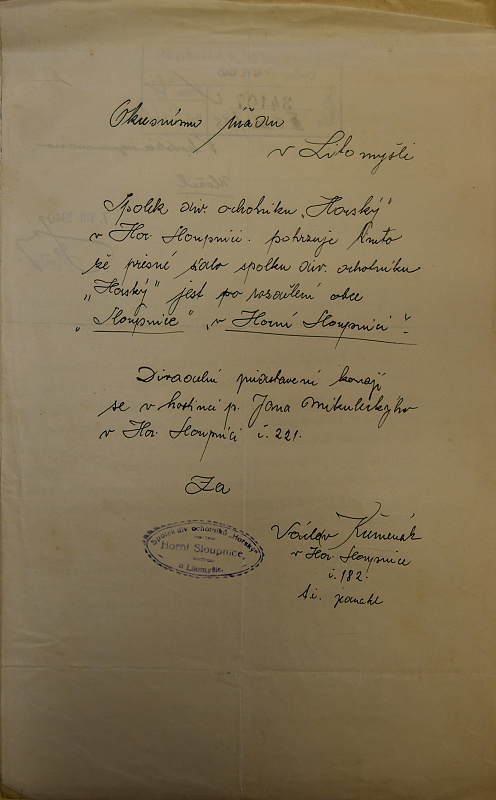 Okresnímu úřadu
v Litomyšli
Spolek div. ochotníku „Horský"
v Hor. Sloupnici. potvrzuje tímto
že přesné sídlo spolku div. ochotníku
„Horský" jest po rozdělení obce
„Sloupnice" „v Horní Sloupnici"
Divadelní představení konají
se v hostinci p. Jana Mikuleckýho
v Hor. Sloupnici č. 221.
Za
Spolek div. ochotníků „Horský"
Horní Sloupnice,
u Litomyšle.
Václav
v Hor. Sloupnice
č. 182.
t. č. jednatel